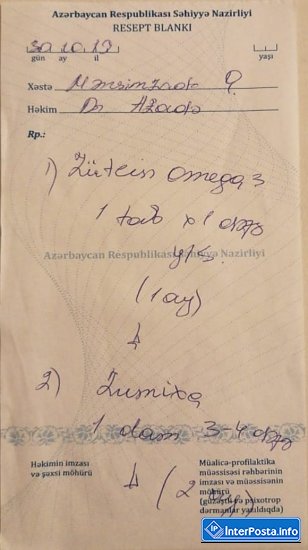 Azərbaycan Respublikası Səhiyyə Nazirliyi
RESEPT BLANKI
30 10 19
gün ay il
yaşı
Xəstə
Həkim Dr Azadə
Rp.:
1) omega 3
1 tab x 1 dəfə
Azərbaycan Respublikası Səhiyyə Nazirliyi
(1 ay)
2)
1 dam 3-4 dəfə
Həkimin imzası
və şəxsi möhürü
Müalicə-profilaktika
müəssisəsi rəhbərinin
imzası və müəssisənin
möhürü
(güzəştli və psixotrop
dərmanlar yazıldıqda)
(2
IP InterPosta.info